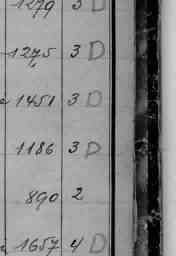 1279 3 D
1275 3 D
1451 3 D
1186 3 D
890 2
1657 4 D